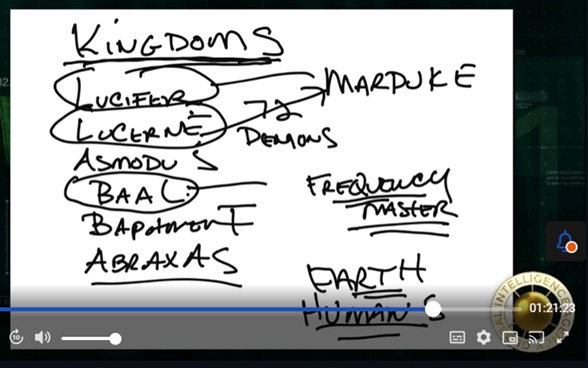 KINGDOMS
LUCIFER
MARDUKE
LUCERNE
72
DEMONS
ASMODUS
BAAL
FREQUENCY
MASTER
BAPHOMENT
ABRAXAS
EARTH
HUMANS
01:21:23
10
AL INTELLIGENCE AG